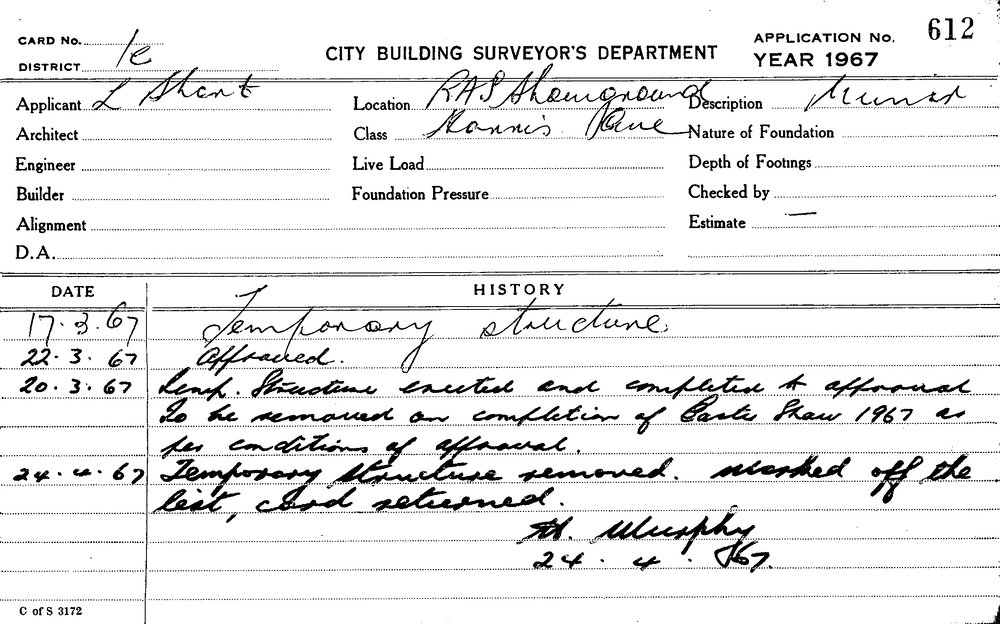 CARD No.
612
APPLICATION No.
CITY BUILDING SURVEYOR'S DEPARTMENT
DISTRICT 1e
YEAR 1967
Applicant L Short Location RAS Showground Description
Architect Class Nature of Foundation
Engineer Live Load Depth of Footings
Builder Foundation Pressure Checked by
Alignment Estimate —
D.A.
DATE HISTORY
17.3.67 Temporary structure
22.3.67 Approved.
20.3.67 Temp. Structure erected and completed to approval
To be removed on completion of Easter Show 1967 as
per conditions of approval.
24.4.67 Temporary structure removed. marked off the
list, card returned.
Murphy
24.4.67.
C of S 3172